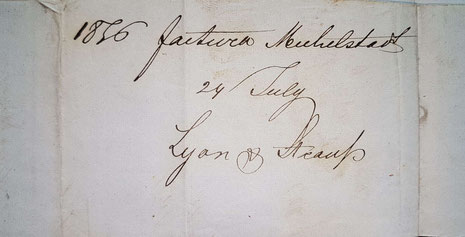 1856 factura Michelstadt
24 July
Lyon & Strauß